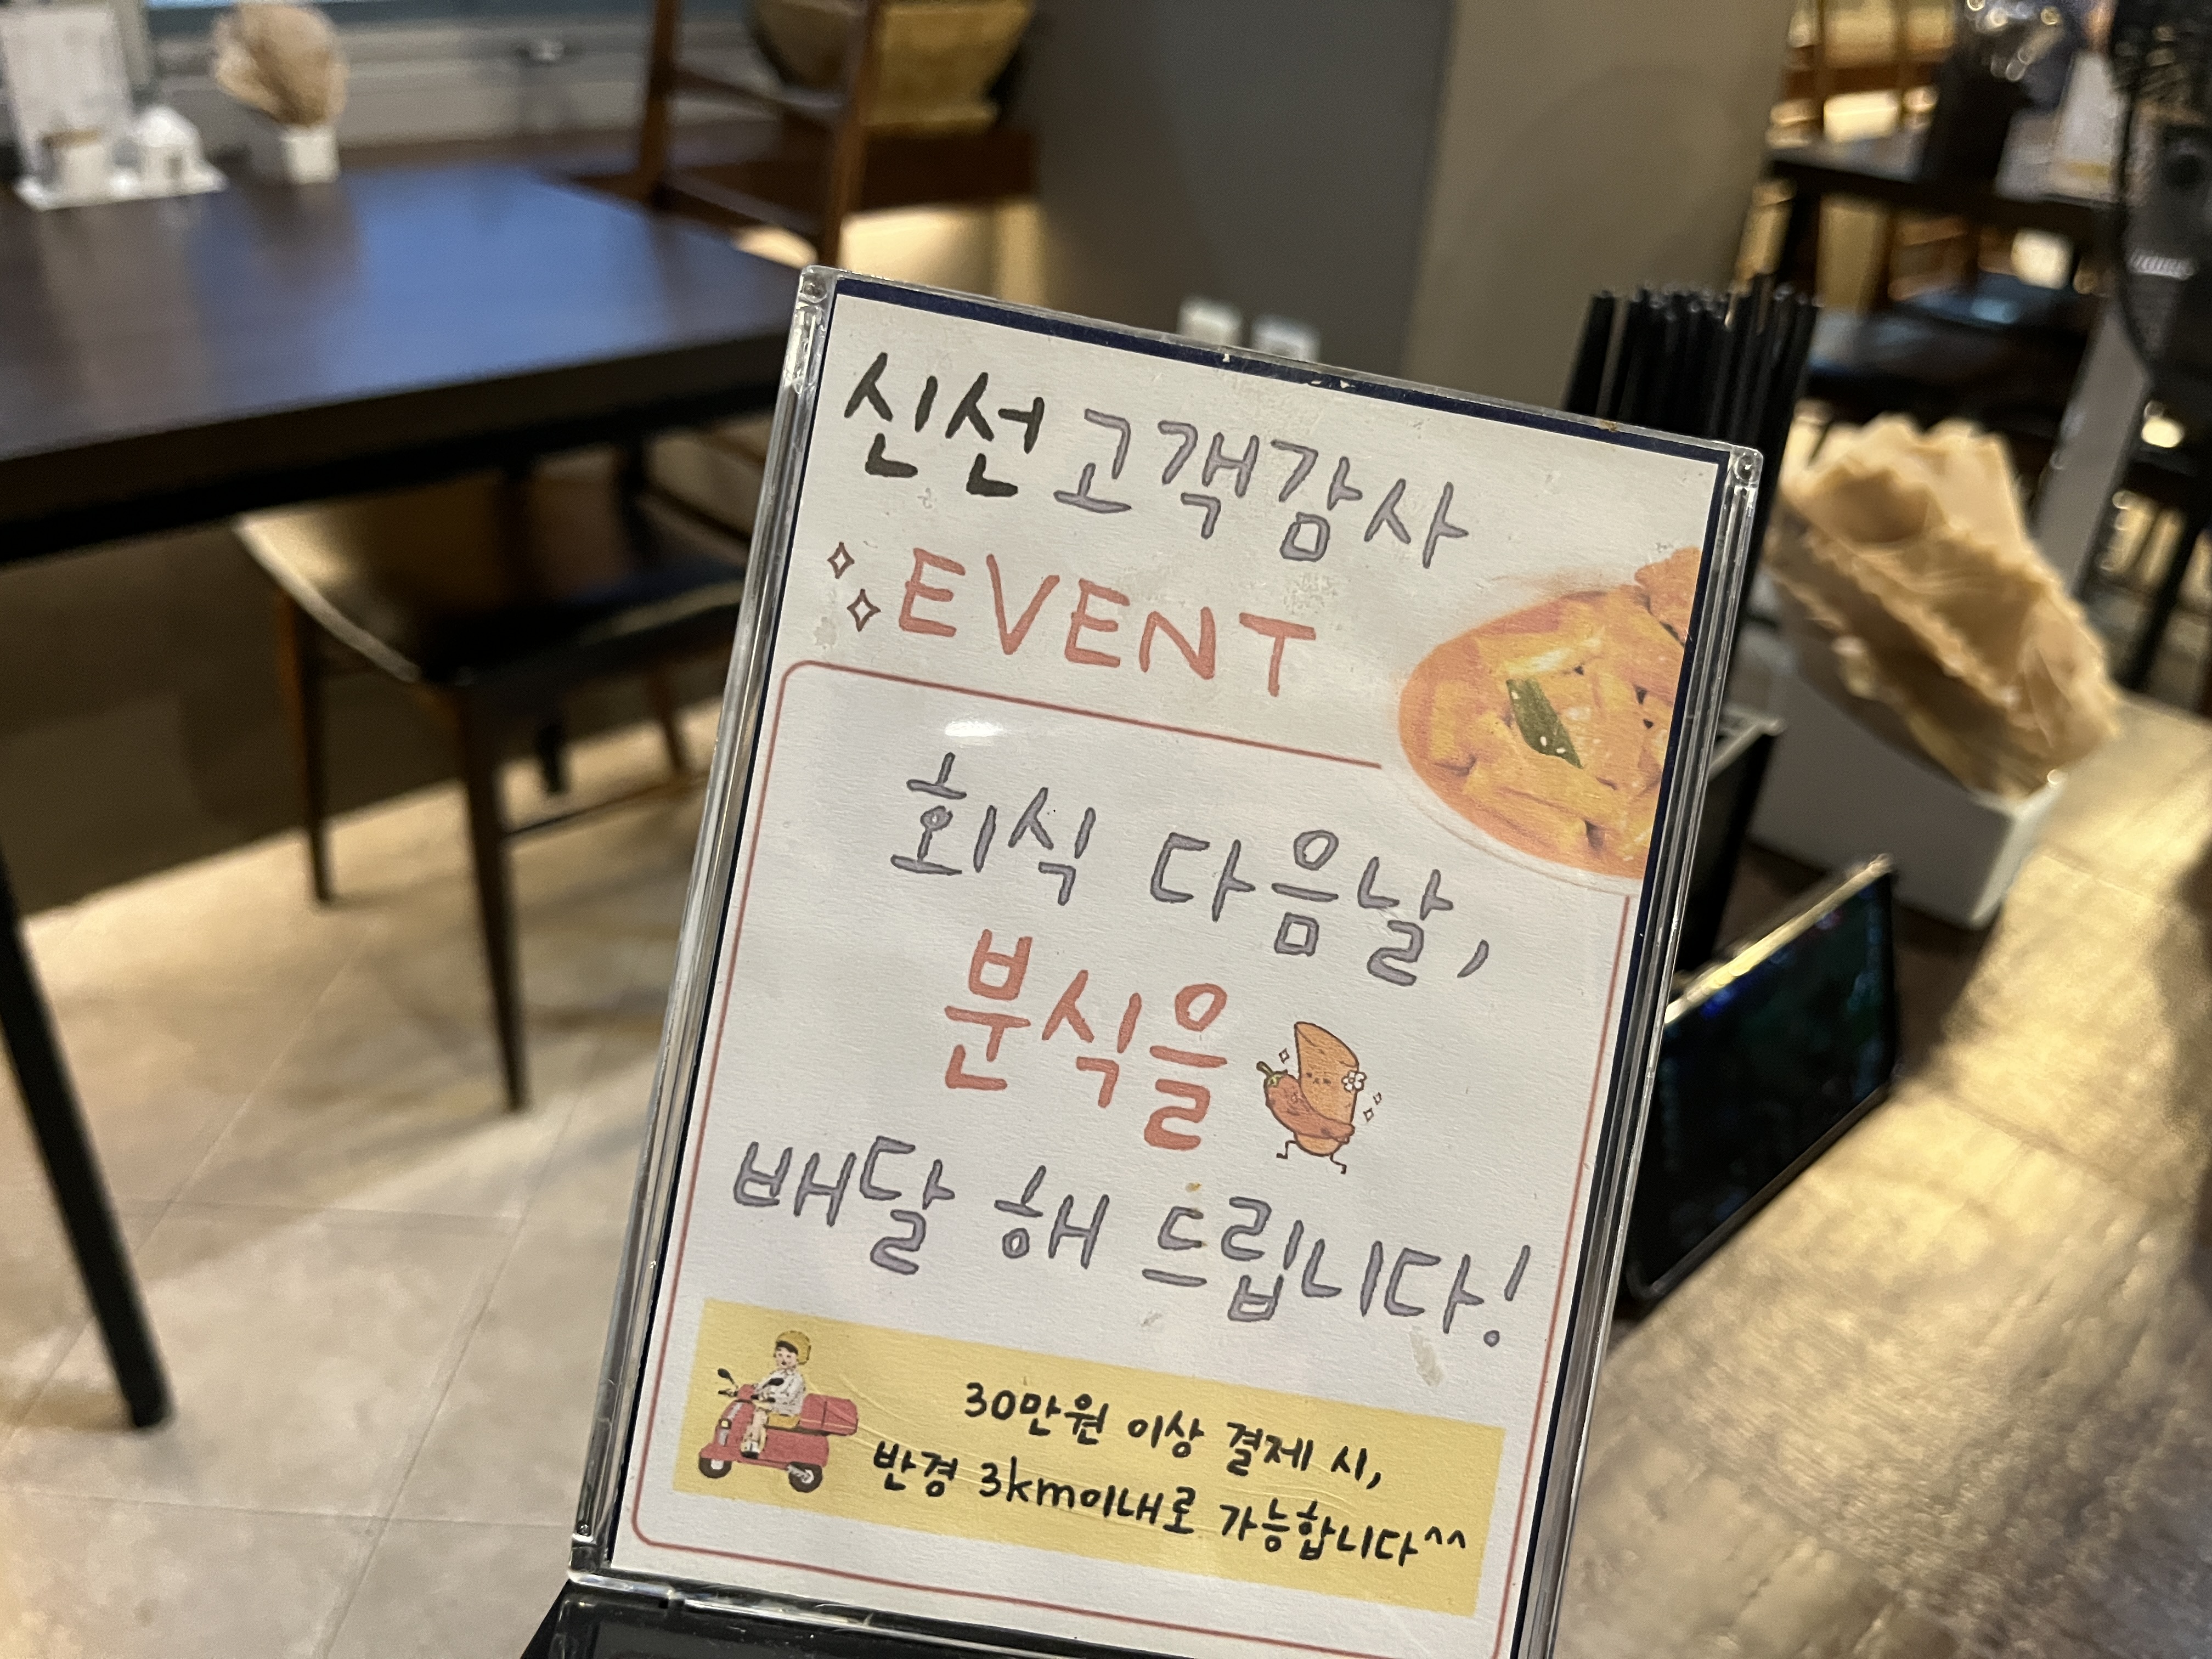 신선 고객감사
EVENT
회식 다음날,
분식을
배달 해 드립니다!
30만원 이상 결제 시,
반경 3km이내로 가능합니다^^